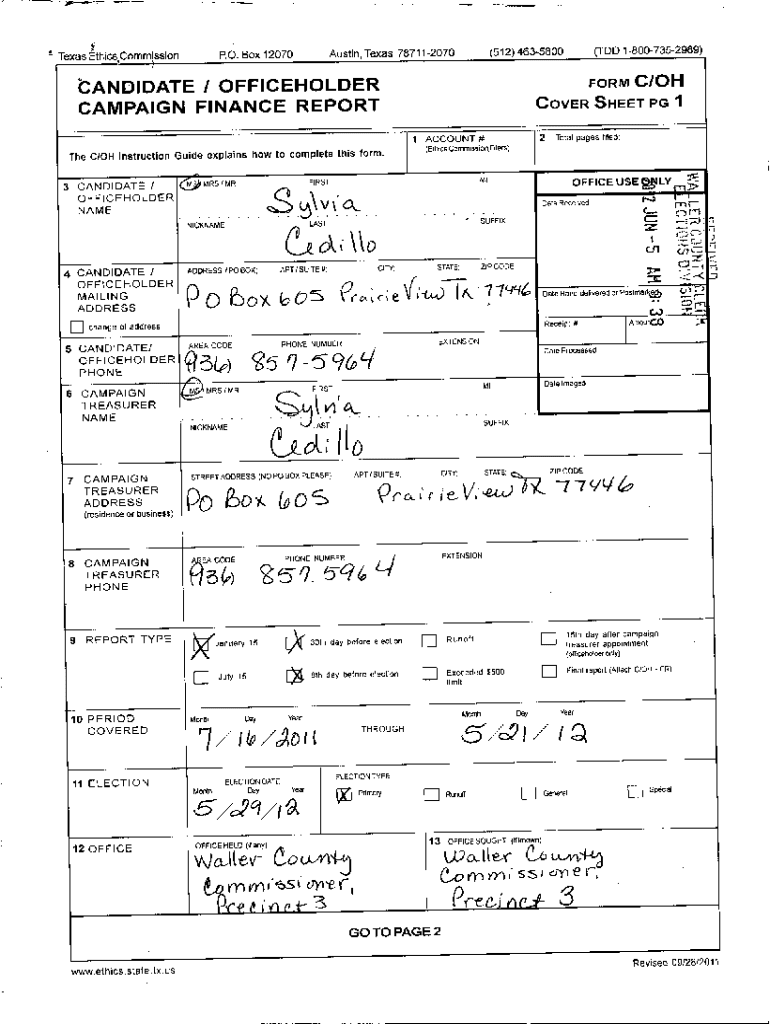 Texas Ethics Commission P.O. Box 12070 Austin, Texas 78711-2070 (512) 463-5800 (TDD 1-800-735-2989)
CANDIDATE / OFFICEHOLDER
CAMPAIGN FINANCE REPORT
FORM C/OH
COVER SHEET PG 1
The C/OH Instruction Guide explains how to complete this form.
1 ACCOUNT #
(Ethics Commission Filers)
2 Total pages filed:
3 CANDIDATE /
OFFICEHOLDER
NAME
MS / MRS / MR FIRST MI
Sylvia
NICKNAME LAST SUFFIX
Cedillo
OFFICE USE ONLY
Date Received
WALLER COUNTY CLERK
ELECTIONS DIVISION
RECEIVED
2012 JUN -5 AM 8:33
4 CANDIDATE /
OFFICEHOLDER
MAILING
ADDRESS
change of address
ADDRESS / PO BOX; APT / SUITE #; CITY; STATE; ZIP CODE
PO Box 605 Prairie View Tx 77446
Date Hand-delivered or Postmarked
Receipt # Amount
5 CANDIDATE/
OFFICEHOLDER
PHONE
AREA CODE PHONE NUMBER EXTENSION
(936) 857-5964
Date Processed
6 CAMPAIGN
TREASURER
NAME
MS / MRS / MR FIRST MI
Sylvia
NICKNAME LAST SUFFIX
Cedillo
Date Imaged
7 CAMPAIGN
TREASURER
ADDRESS
(residence or business)
STREET ADDRESS (NO PO BOX PLEASE); APT / SUITE #; CITY; STATE; ZIP CODE
PO Box 605 Prairie View TX 77446
8 CAMPAIGN
TREASURER
PHONE
AREA CODE PHONE NUMBER EXTENSION
(936) 857-5964
9 REPORT TYPE
X January 15
X 30th day before election
Runoff
15th day after campaign
treasurer appointment
(officeholder only)
July 15
X 8th day before election
Exceeded $500
limit
Final report (Attach C/OH - FR)
10 PERIOD
COVERED
Month Day Year
7/16/2011
THROUGH
Month Day Year
5/21/12
11 ELECTION
ELECTION DATE
Month Day Year
5/29/12
ELECTION TYPE
X Primary
Runoff
General
Special
12 OFFICE
OFFICE HELD (if any)
Waller County
Commissioner,
Precinct 3
13 OFFICE SOUGHT (if known)
Waller County
Commissioner,
Precinct 3
GO TO PAGE 2
www.ethics.state.tx.us
Revised 09/28/2011